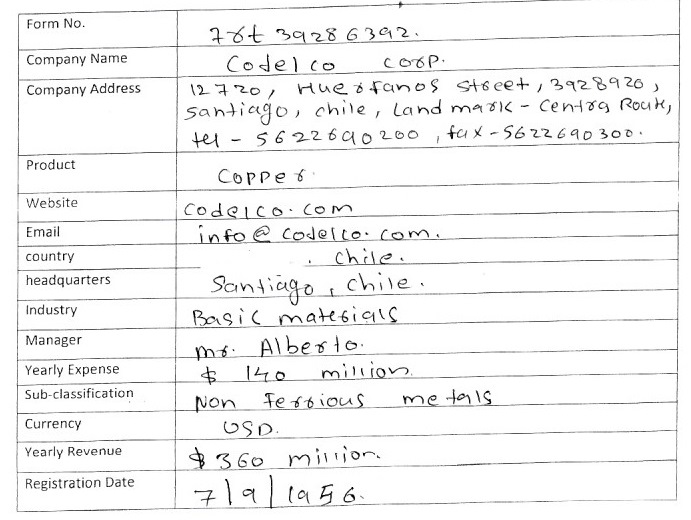 Form No. 78t 39286392.
Company Name Codelco corp.
Company Address 12720, Huerfanos street, 3928920,
santiago, chile, Land mark - Centra Route,
tel - 5622690200, fax - 5622690300.
Product Copper.
Website codelco.com
Email info@codelco.com.
country Chile.
headquarters Santiago, chile.
Industry Basic materials
Manager mr. Alberto.
Yearly Expense $ 140 million.
Sub-classification Non ferrious metals
Currency USD.
Yearly Revenue $ 360 million.
Registration Date 7/9/1956.